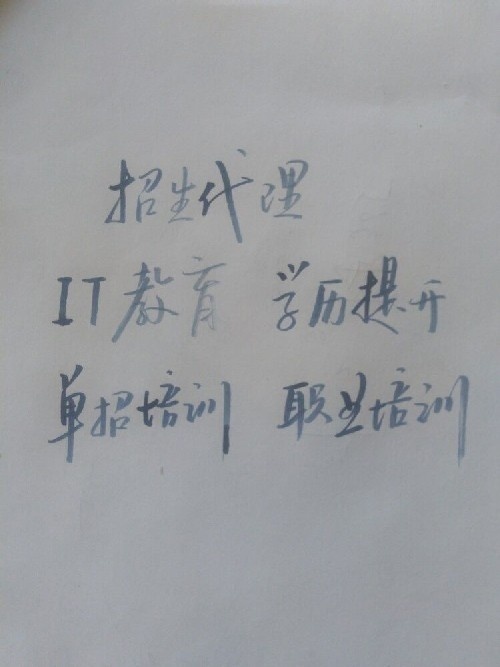 招生代理
IT教育 学历提升
单招培训 职业培训